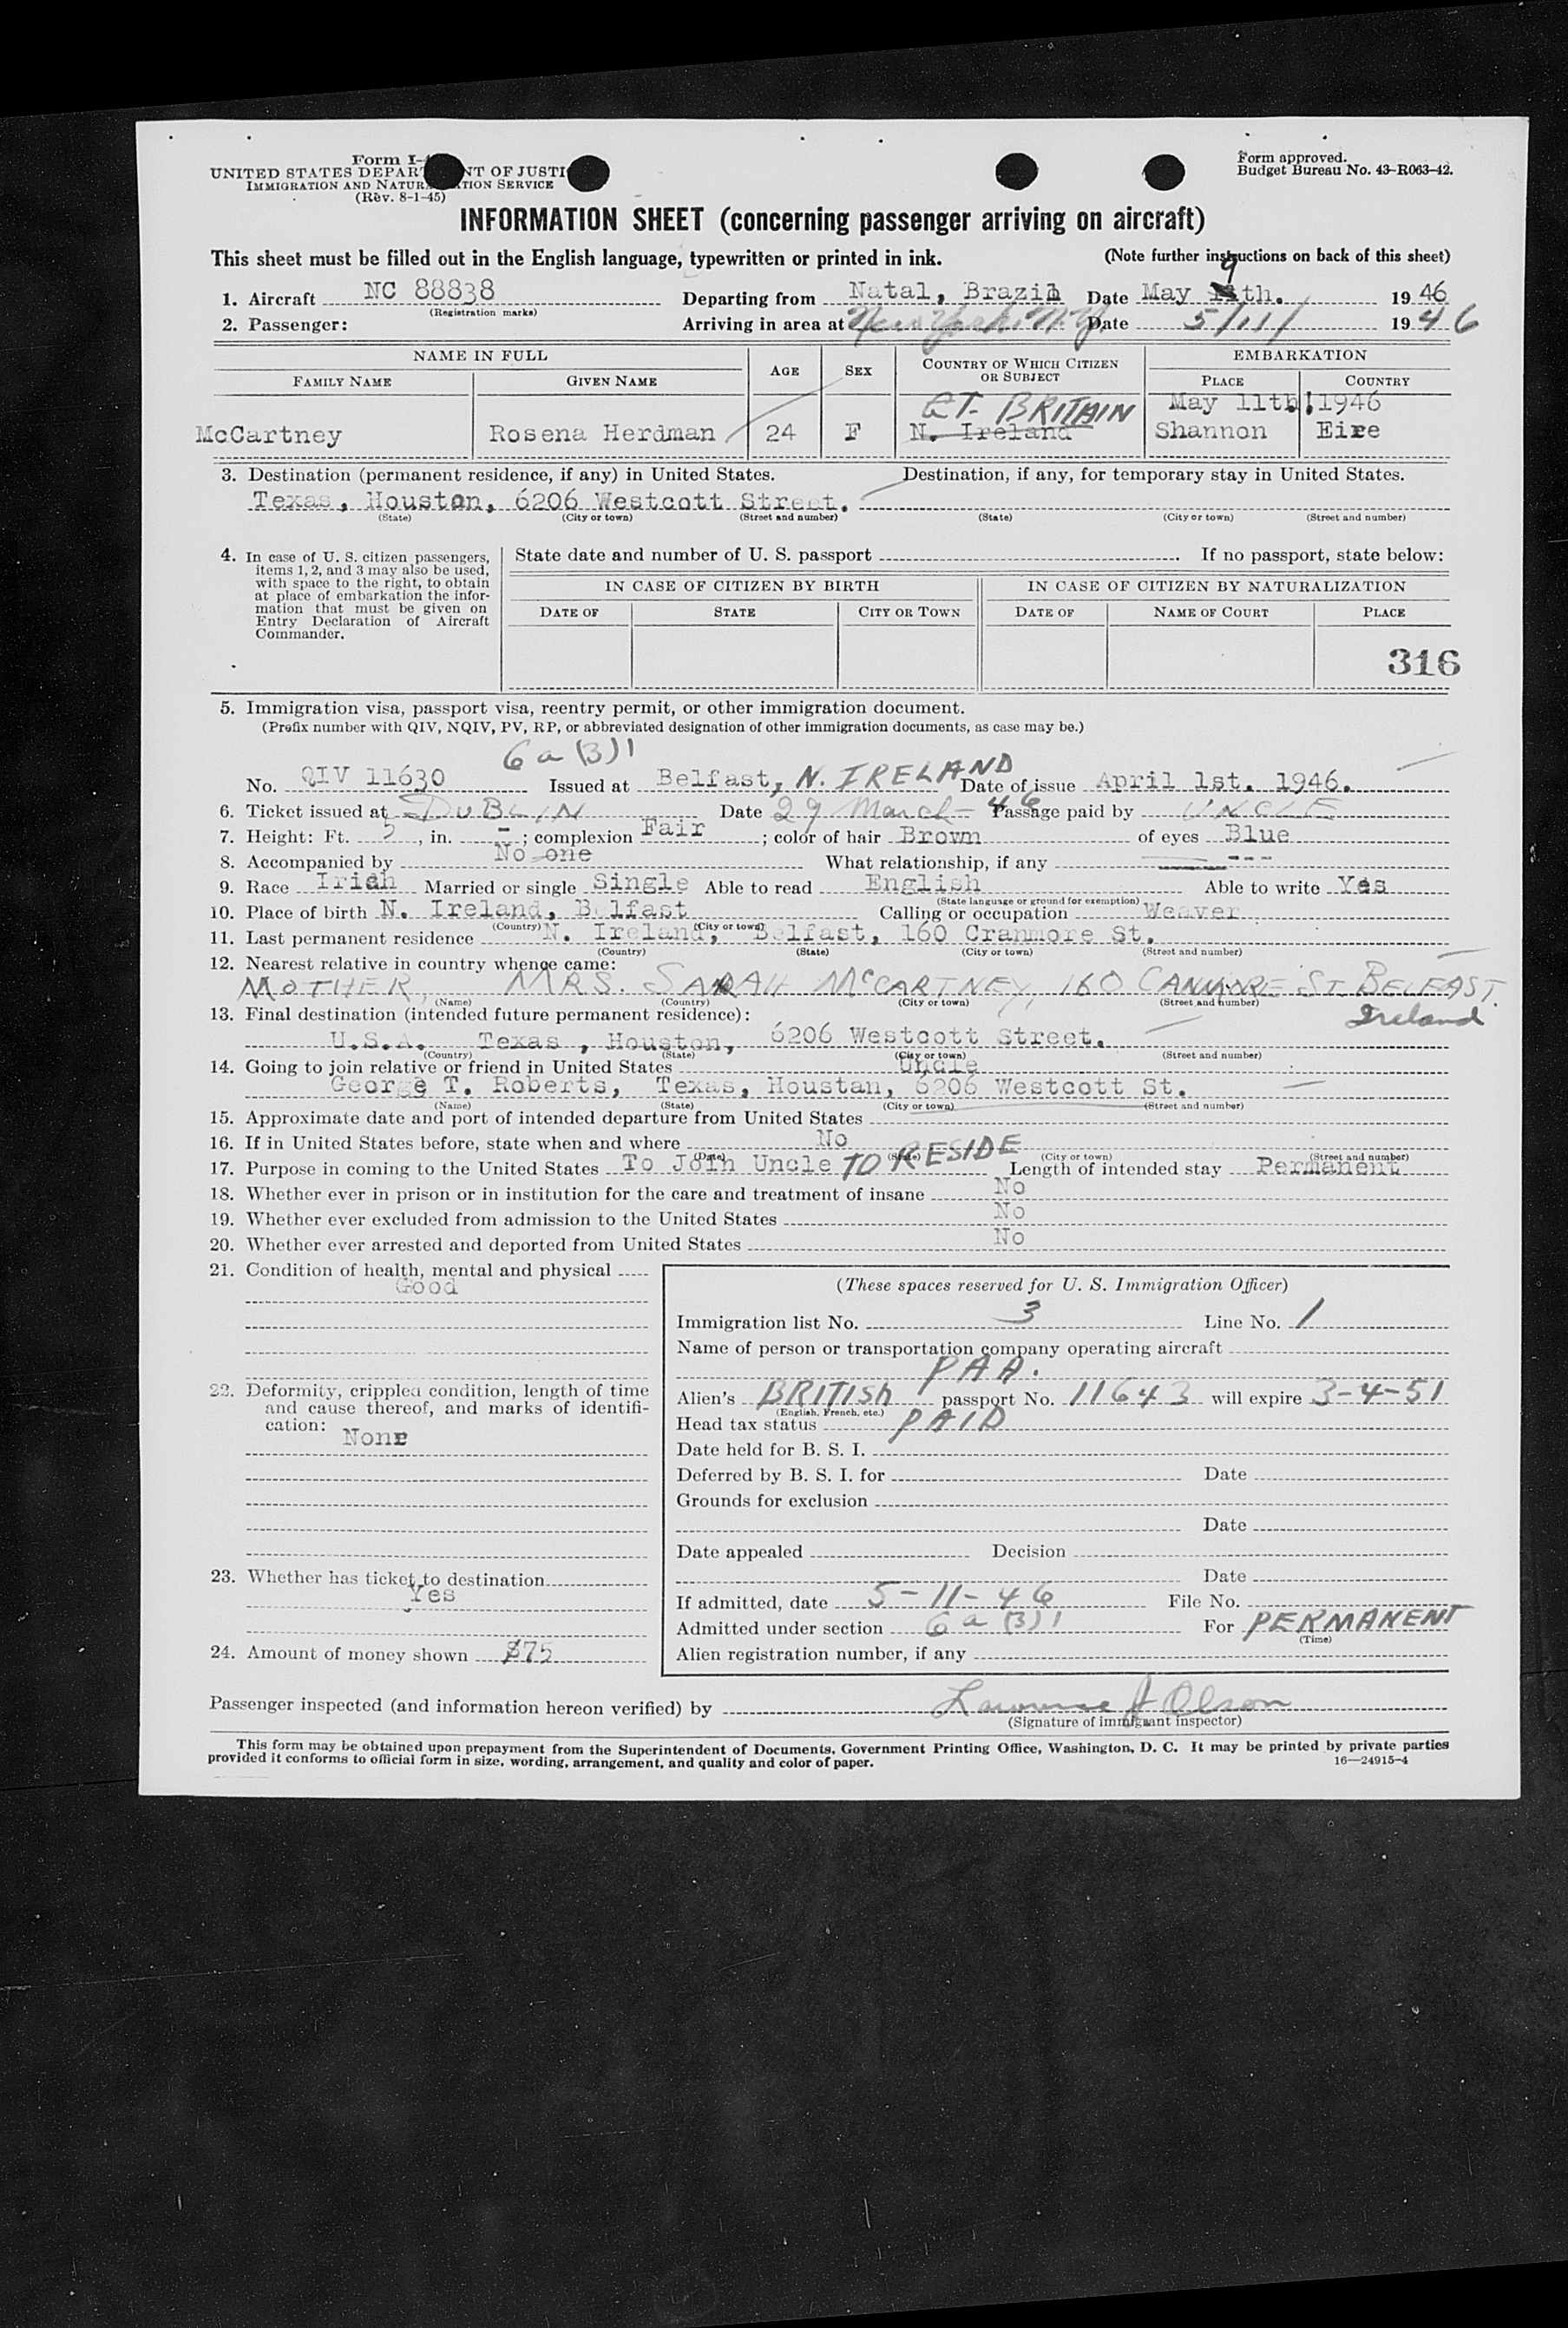 Form I-4
UNITED STATES DEPAR NT OF JUSTI
IMMIGRATION AND NATUR TION SERVICE
(Rev. 8-1-45)
Form approved.
Budget Bureau No. 43-R063-42.
INFORMATION SHEET (concerning passenger arriving on aircraft)
This sheet must be filled out in the English language, typewritten or printed in ink. (Note further instructions on back of this sheet)
1. Aircraft NC 88838 Departing from Natal, Brazil Date May 9th. 19 46
(Registration marks)
2. Passenger: Arriving in area at New York, N.Y. Date 5/11/ 19 46
NAME IN FULL AGE SEX COUNTRY OF WHICH CITIZEN OR SUBJECT EMBARKATION
FAMILY NAME GIVEN NAME PLACE COUNTRY
GT. BRITAIN May 11th, 1946
McCartney Rosena Herdman 24 F N. Ireland Shannon Eire
3. Destination (permanent residence, if any) in United States. Destination, if any, for temporary stay in United States.
Texas, Houston, 6206 Westcott Street.
(State) (City or town) (Street and number) (State) (City or town) (Street and number)
4. In case of U. S. citizen passengers, items 1, 2, and 3 may also be used, with space to the right, to obtain at place of embarkation the information that must be given on Entry Declaration of Aircraft Commander.
State date and number of U. S. passport . If no passport, state below:
IN CASE OF CITIZEN BY BIRTH IN CASE OF CITIZEN BY NATURALIZATION
DATE OF STATE CITY OR TOWN DATE OF NAME OF COURT PLACE
316
5. Immigration visa, passport visa, reentry permit, or other immigration document.
(Prefix number with QIV, NQIV, PV, RP, or abbreviated designation of other immigration documents, as case may be.)
6 a (3) 1
No. QIV 11630 Issued at Belfast, N. IRELAND Date of issue April 1st. 1946.
6. Ticket issued at DUBLIN Date 29 March - 46 Passage paid by UNCLE
7. Height: Ft. 5, in. -; complexion Fair; color of hair Brown of eyes Blue
8. Accompanied by No one What relationship, if any ---
9. Race Irish Married or single Single Able to read English Able to write Yes
(State language or ground for exemption)
10. Place of birth N. Ireland, Belfast Calling or occupation Weaver
(Country) (City or town)
11. Last permanent residence N. Ireland, Belfast, 160 Cranmore St.
(Country) (State) (City or town) (Street and number)
12. Nearest relative in country whence came:
MOTHER, MRS. SARAH McCARTNEY, 160 CANMORE ST. BELFAST.
(Name) (Country) (City or town) (Street and number)
Ireland
13. Final destination (intended future permanent residence):
U.S.A. Texas, Houston, 6206 Westcott Street.
(Country) (State) (City or town) (Street and number)
14. Going to join relative or friend in United States Uncle
George T. Roberts, Texas, Houstan, 6206 Westcott St.
(Name) (State) (City or town) (Street and number)
15. Approximate date and port of intended departure from United States
16. If in United States before, state when and where No
(Date) (State) (City or town) (Street and number)
17. Purpose in coming to the United States To Join Uncle TO RESIDE Length of intended stay Permanent
18. Whether ever in prison or in institution for the care and treatment of insane No
19. Whether ever excluded from admission to the United States No
20. Whether ever arrested and deported from United States No
21. Condition of health, mental and physical
Good
(These spaces reserved for U. S. Immigration Officer)
Immigration list No. 3 Line No. 1
Name of person or transportation company operating aircraft
PAA.
22. Deformity, crippled condition, length of time and cause thereof, and marks of identification:
None
Alien's BRITISH passport No. 11643 will expire 3-4-51
(English, French, etc.)
Head tax status PAID
Date held for B. S. I.
Deferred by B. S. I. for Date
Grounds for exclusion
Date
Date appealed Decision
23. Whether has ticket to destination
Yes
Date
If admitted, date 5-11-46 File No.
Admitted under section 6 a (3) 1 For PERMANENT
(Time)
24. Amount of money shown $75
Alien registration number, if any
Passenger inspected (and information hereon verified) by Lawrence J Olson
(Signature of immigrant inspector)
This form may be obtained upon prepayment from the Superintendent of Documents, Government Printing Office, Washington, D. C. It may be printed by private parties
provided it conforms to official form in size, wording, arrangement, and quality and color of paper. 16—24915-4